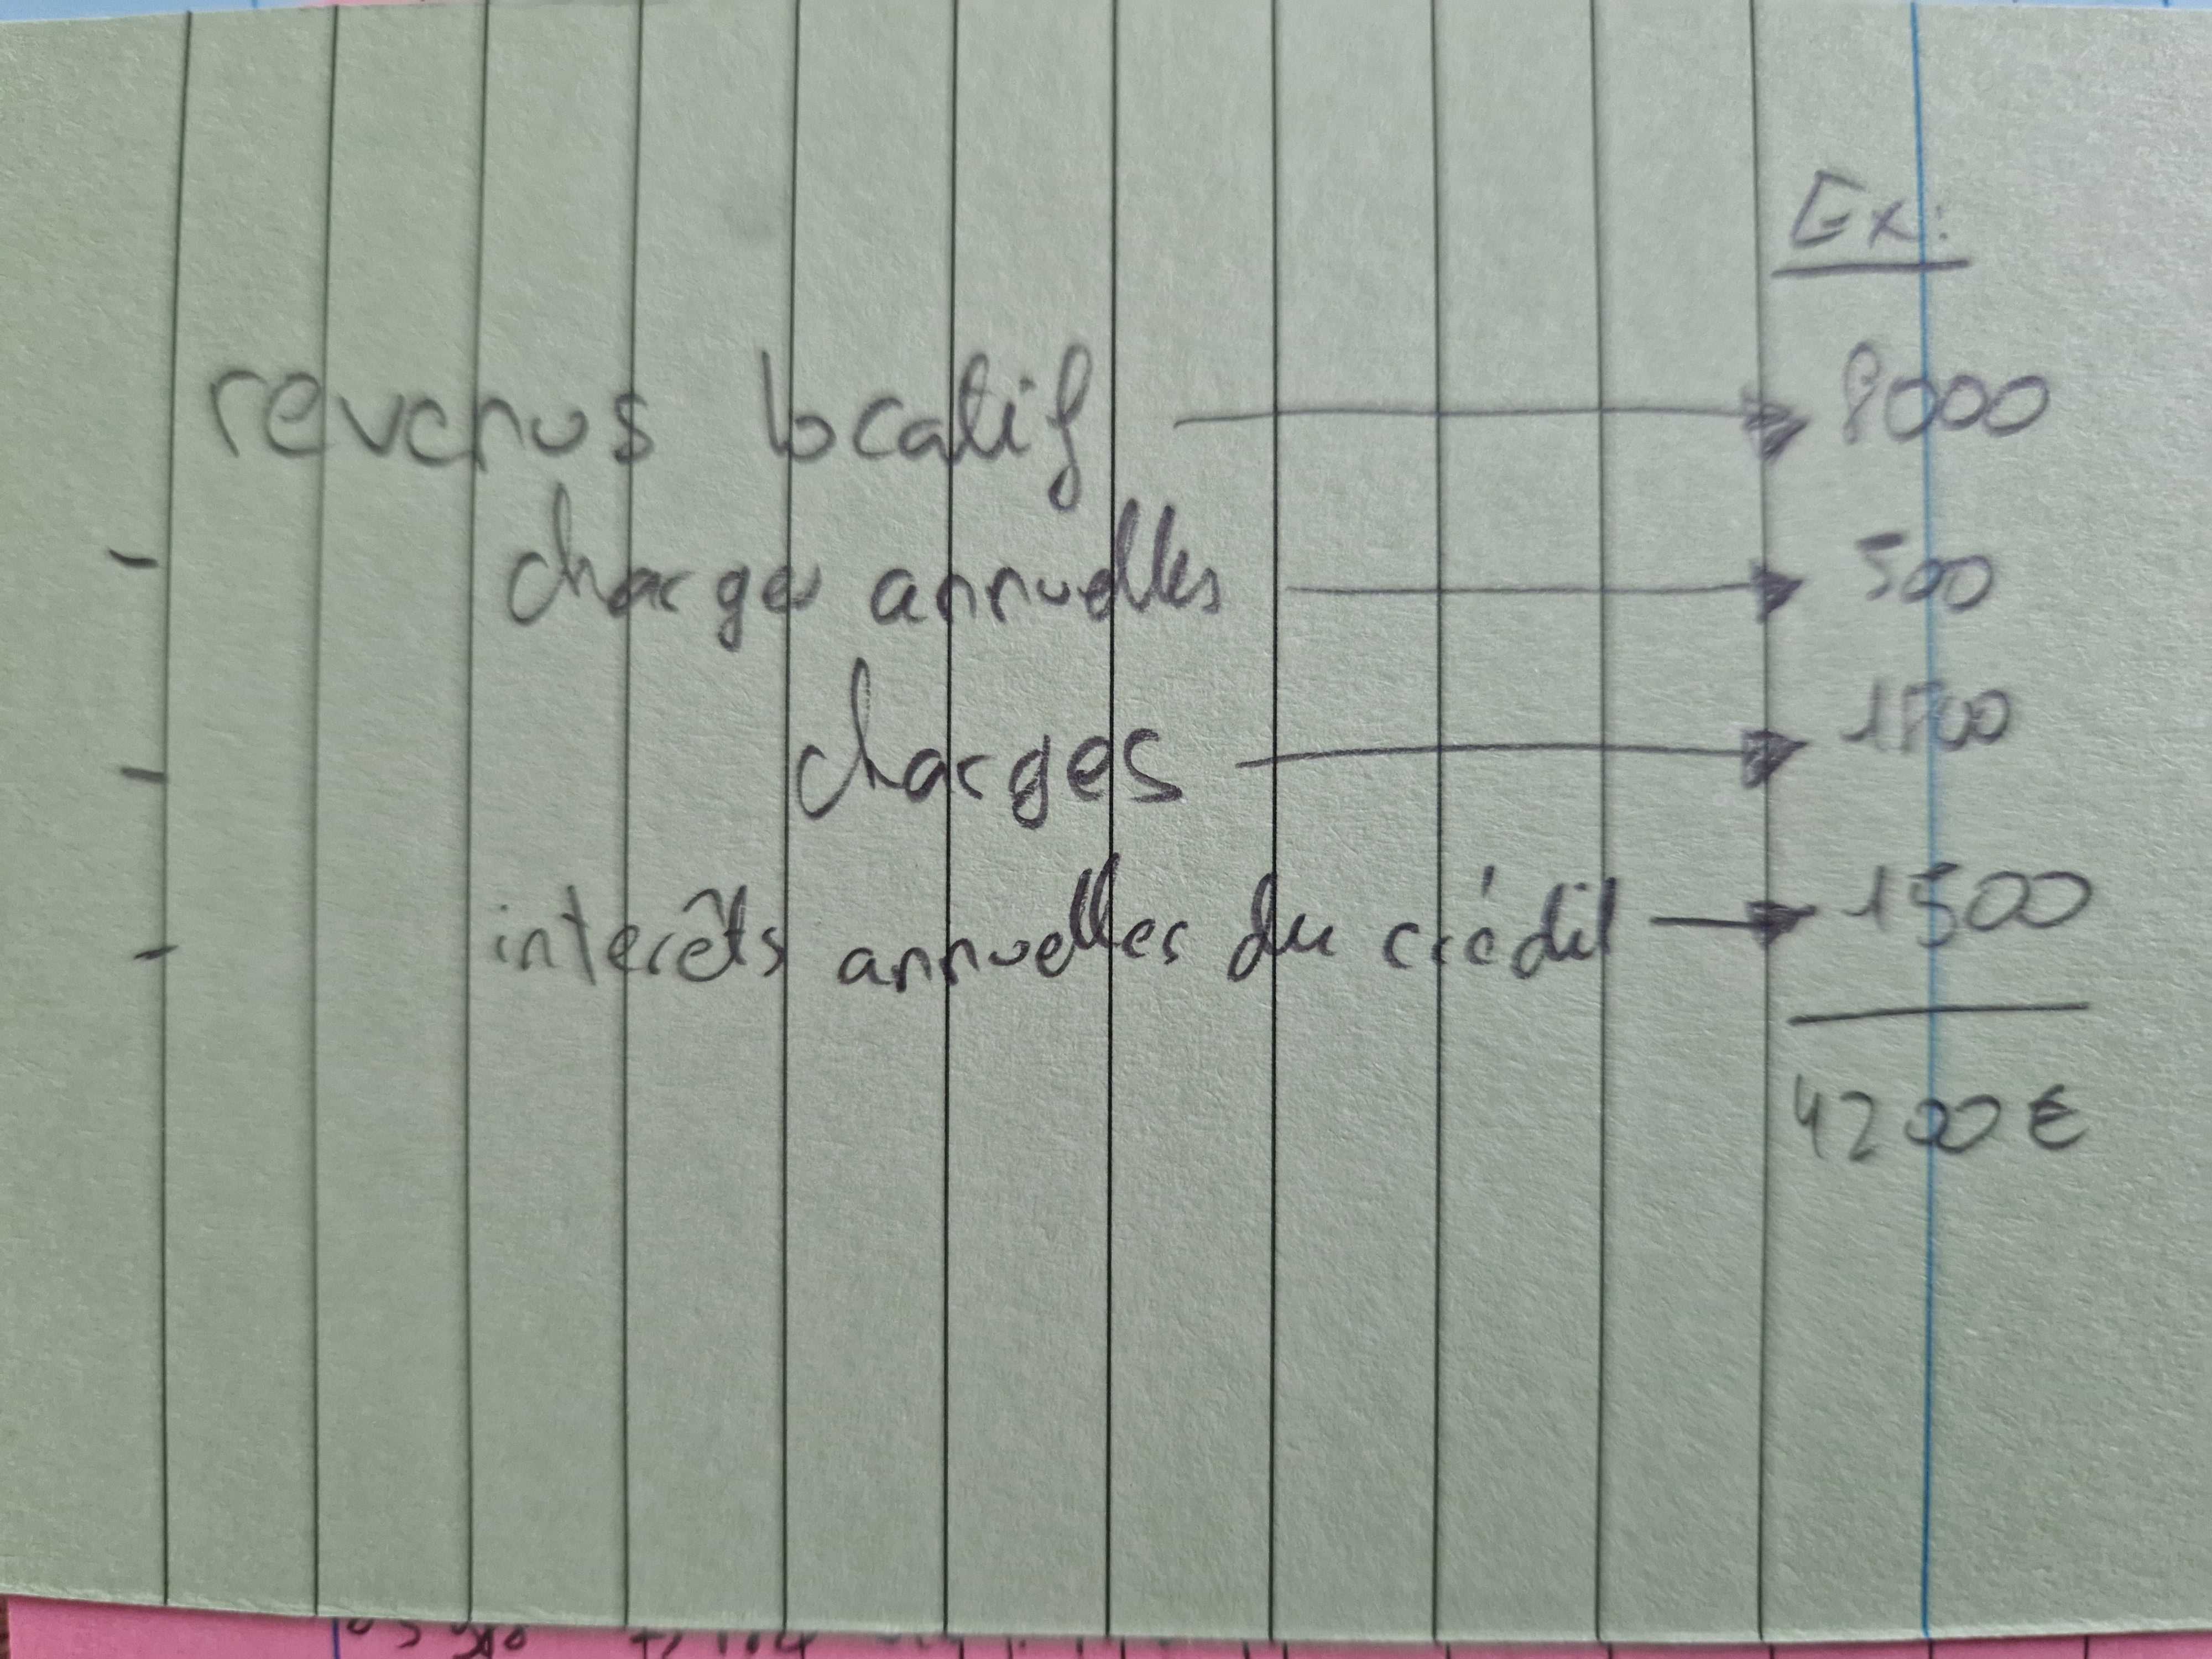 Ex:
revenus locatif → 8000
- charges annuelles → 500
- charges → 1800
- interêts annuelles du crédit → 1500
4200 €